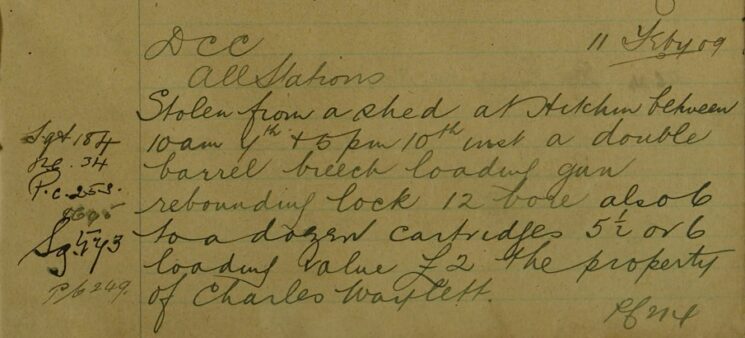 DCC 11 Feby 09
All Stations
Stolen from a shed at Hitchin between
10 am 9th + 5 pm 10th inst a double
barrel breech loading gun
rebounding lock 12 bore also 6
to a dozen cartridges 5½ or 6
loading value £2 the property
of Charles Waylett.
Sgt 184
Pc. 34
P.c. 253.
Sgt 173
P/c 249.